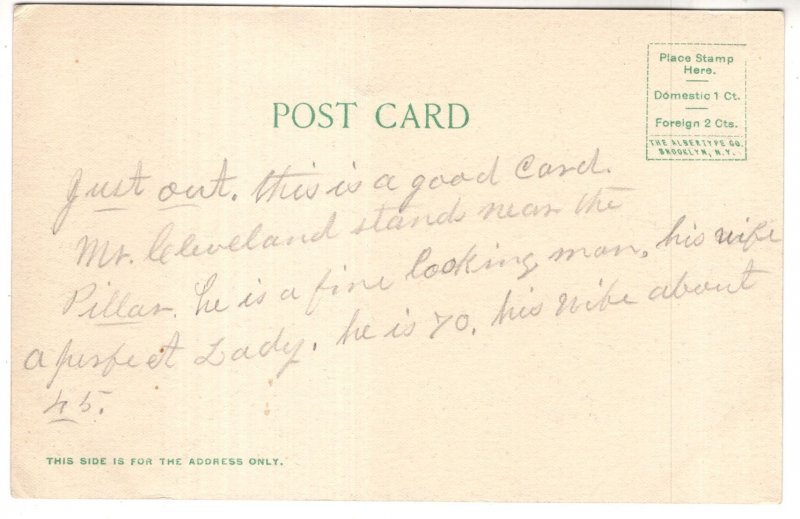 POST CARD
Place Stamp
Here.
Domestic 1 Ct.
Foreign 2 Cts.
THE ALBERTYPE CO.
BROOKLYN, N.Y.
Just out. this is a good Card.
Mr. Cleveland stands near the
Pillar. he is a fine looking man, his wife
a perfect Lady. he is 70. his wife about
45.
THIS SIDE IS FOR THE ADDRESS ONLY.